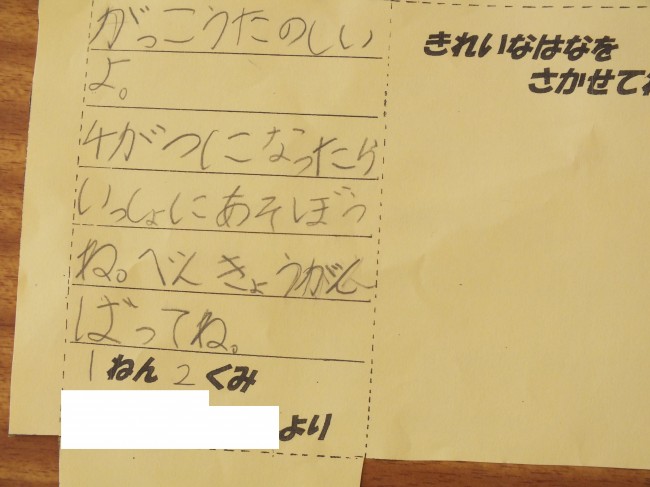 がっこうたのしい
よ。
4がつになったら
いっしょにあそぼう
ね。べんきょうがん
ばってね。
1ねん2くみ
より
きれいなはなを
さかせてね